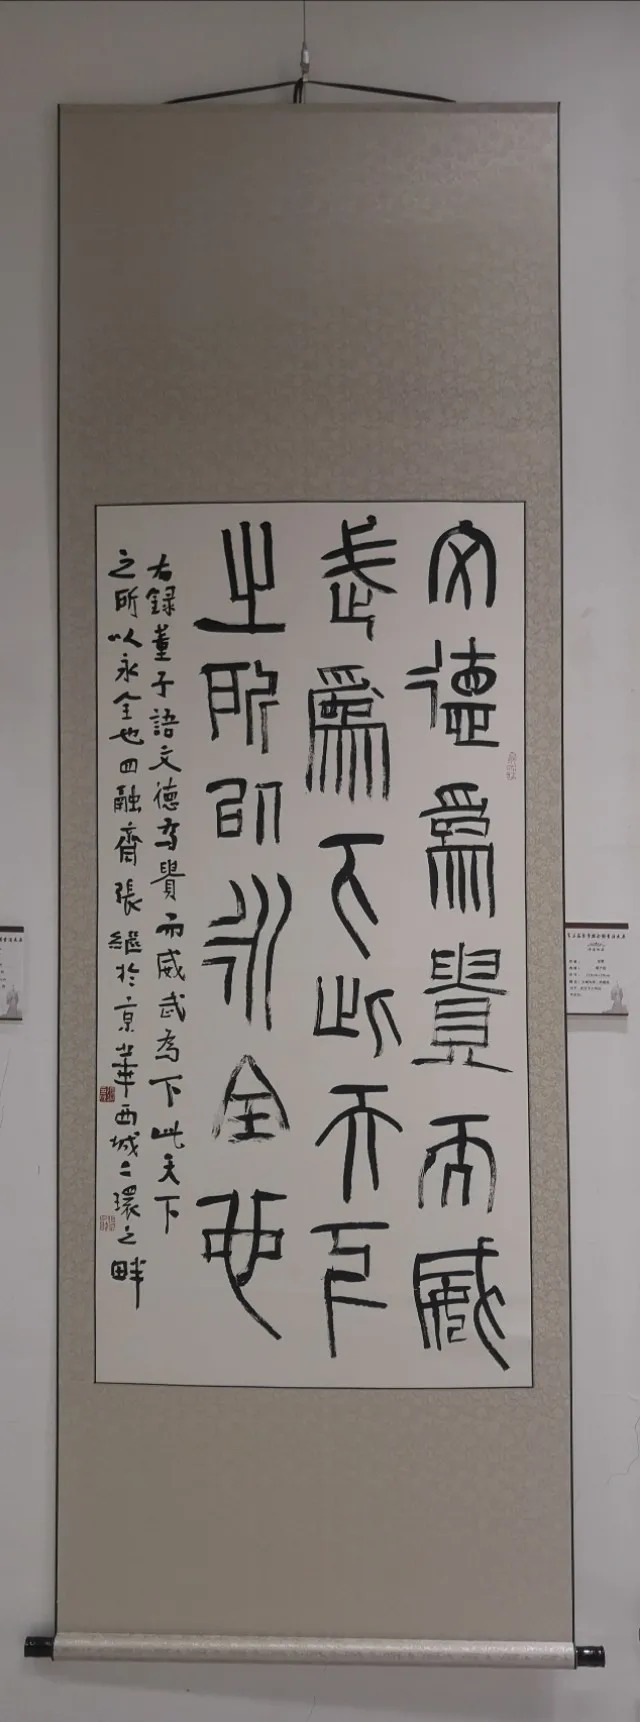 文德爲貴而威
武爲下此天下
之所以永全也
右録董子語文德為貴而威武為下此天下
之所以永全也四融齋張繼於京華西城二環之畔